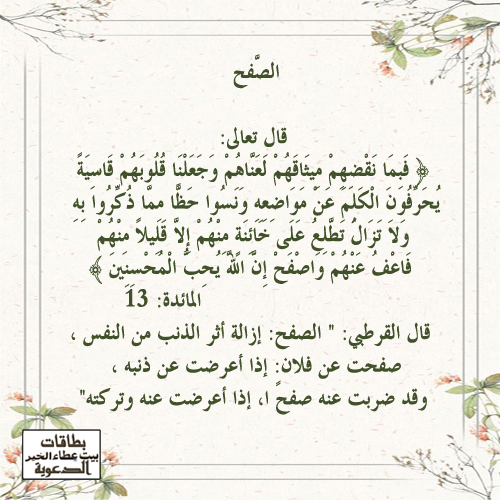 الصَّفح
قال تعالى:
﴿ فَبِمَا نَقْضِهِمْ مِيثَاقَهُمْ لَعَنَّاهُمْ وَجَعَلْنَا قُلُوبَهُمْ قَاسِيَةً
يُحَرِّفُونَ الْكَلِمَ عَنْ مَوَاضِعِهِ وَنَسُوا حَظًّا مِمَّا ذُكِّرُوا بِهِ
وَلَا تَزَالُ تَطَّلِعُ عَلَى خَائِنَةٍ مِنْهُمْ إِلَّا قَلِيلاً مِنْهُمْ
فَاعْفُ عَنْهُمْ وَاصْفَحْ إِنَّ اللَّهَ يُحِبُّ الْمُحْسِنِينَ ﴾
المائدة: 13
قال القرطبي: " الصفح: إزالة أثر الذنب من النفس ،
صفحت عن فلان: إذا أعرضت عن ذنبه ،
وقد ضربت عنه صفحً ا، إذا أعرضت عنه وتركته"
بطاقات
بيت عطاء الخير
الدعوية